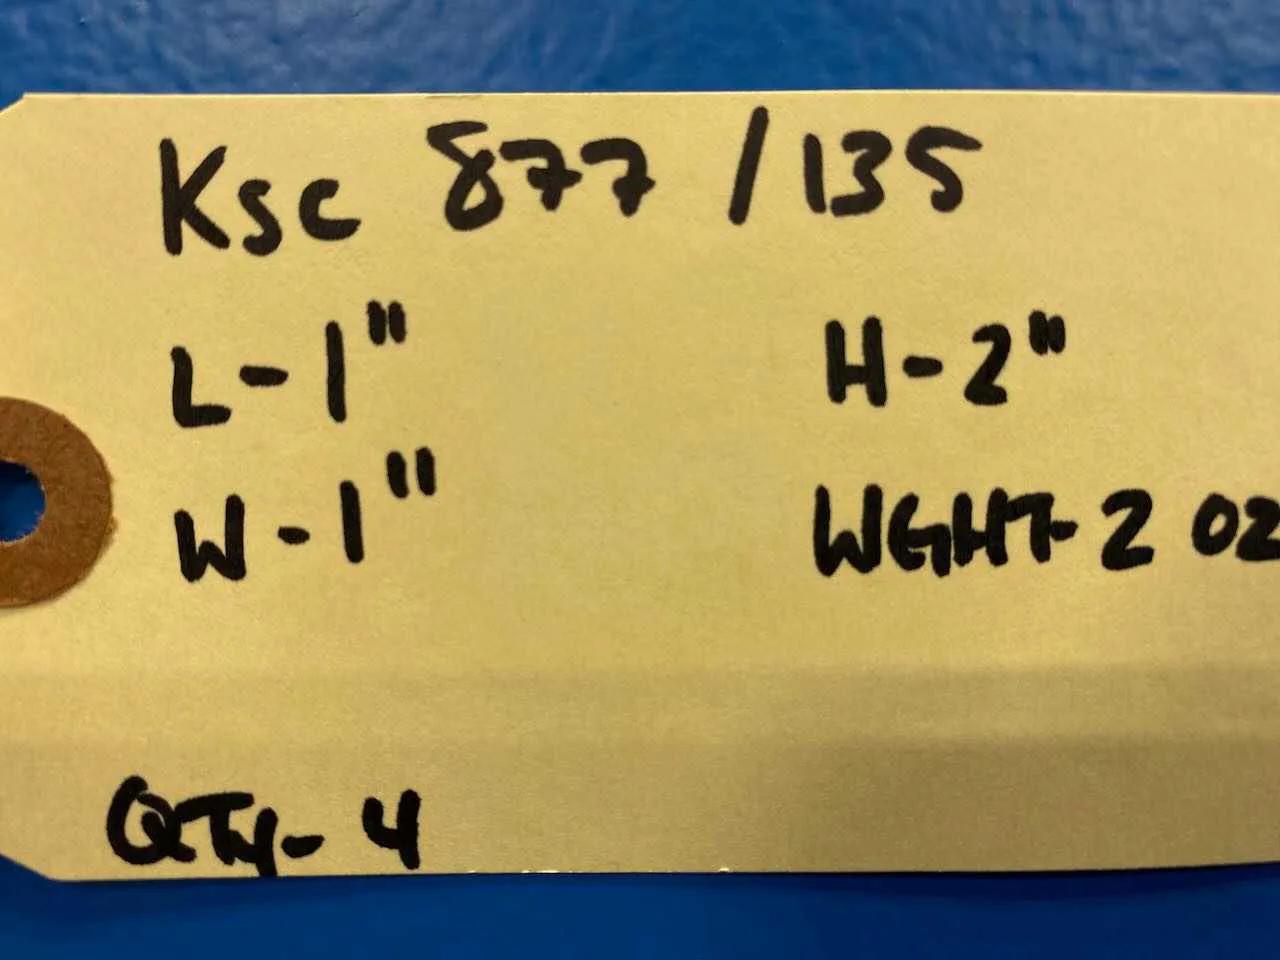 Ksc 877 / 135
L-1" H-2"
W-1" WGHT-2 OZ
QTy-4